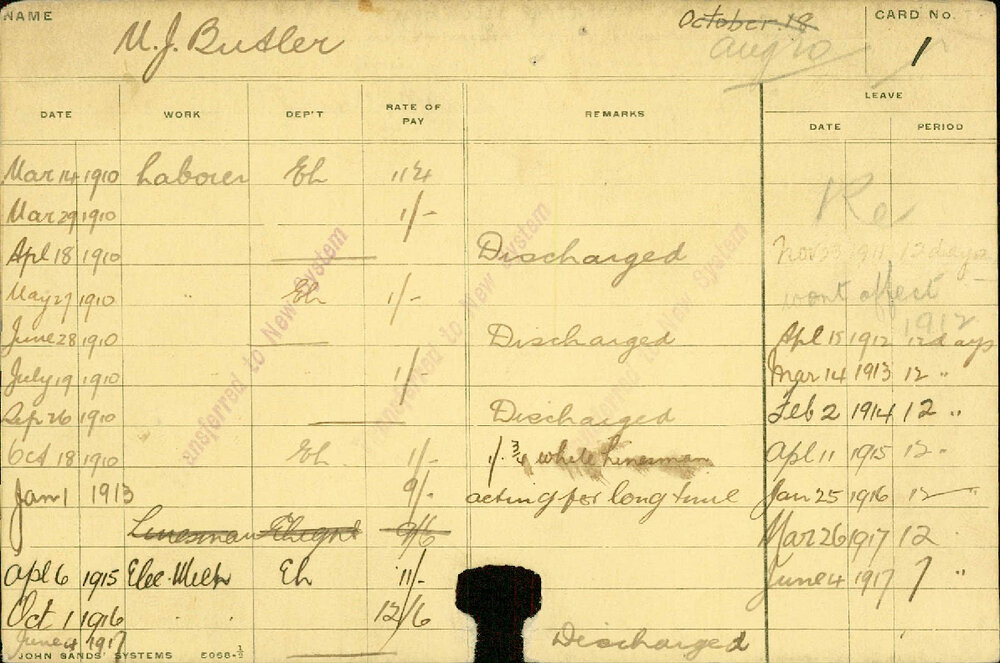 NAME M. J. Butler October 18 CARD No. 1
Aug 20
LEAVE
DATE WORK DEP'T RATE OF PAY REMARKS DATE PERIOD
Mar 14 1910 Laborer Eh
Mar 29 1910 1/-
Apl 18 1910 Discharged Nov 23 1911 12 days
May 27 1910 Eh 1/- wont affect 1912
June 28 1910 Discharged Apl 15 1912 12 days
July 19 1910 1/- Mar 14 1913 12 "
Sep 26 1910 Discharged Feb 2 1914 12 "
Oct 18 1910 Eh. 1/- 1/. 3/4 while Linesman Apl 11 1915 12 "
Jan 1 1913 9/- acting for long time Jan 25 1916 12 "
Linesman 9/6 Mar 26 1917 12
Apl 6 1915 Elec. Eh 11/- June 4 1917 7 "
Oct 1 1916 12/6
June 4 1917 Discharged
JOHN SANDS' SYSTEMS E068-½
Transferred to New System
Transferred to New System
Transferred to New System